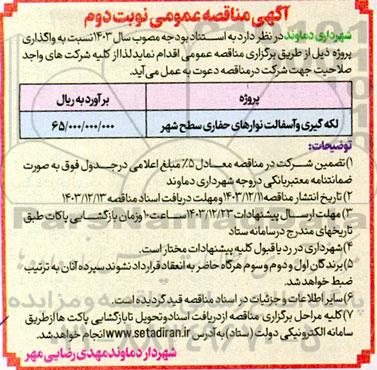 آگهی مناقصه عمومی نوبت دوم
شهرداری دماوند در نظر دارد به استناد بودجه مصوب سال ۱۴۰۳ نسبت به واگذاری
پروژه ذیل از طریق برگزاری مناقصه عمومی اقدام نماید لذا از کلیه شرکت های واجد
صلاحیت جهت شرکت در مناقصه دعوت به عمل می آید.
پروژه برآورد به ریال
لکه گیری و آسفالت نوارهای حفاری سطح شهر ۶۵/۰۰۰/۰۰۰/۰۰۰
توضیحات:
۱) تضمین شرکت در مناقصه معادل ۵٪ مبلغ اعلامی در جدول فوق به صورت
ضمانتنامه معتبر بانکی در وجه شهرداری دماوند
۲) تاریخ انتشار مناقصه ۱۴۰۳/۱۲/۱۱ و مهلت دریافت اسناد مناقصه ۱۴۰۳/۱۲/۱۳
۳) مهلت ارسال پیشنهادات ۱۴۰۳/۱۲/۲۳ ساعت ۱۰ و زمان بازگشایی پاکات طبق
تاریخهای مندرج در سامانه ستاد
۴) شهرداری در رد یا قبول کلیه پیشنهادات مختار است.
۵) برندگان اول و دوم و سوم هرگاه حاضر به انعقاد قرارداد نشوند سپرده آنان به ترتیب
ضبط خواهد شد.
۶) سایر اطلاعات و جزئیات در اسناد مناقصه قید گردیده است.
۷) کلیه مراحل برگزاری مناقصه از دریافت اسناد و تحویل تا بازگشایی پاکت ها از طریق
سامانه الکترونیکی دولت (ستاد) به آدرس www.setadiran.ir انجام خواهد شد.
شهردار دماوند مهدی رضایی مهر